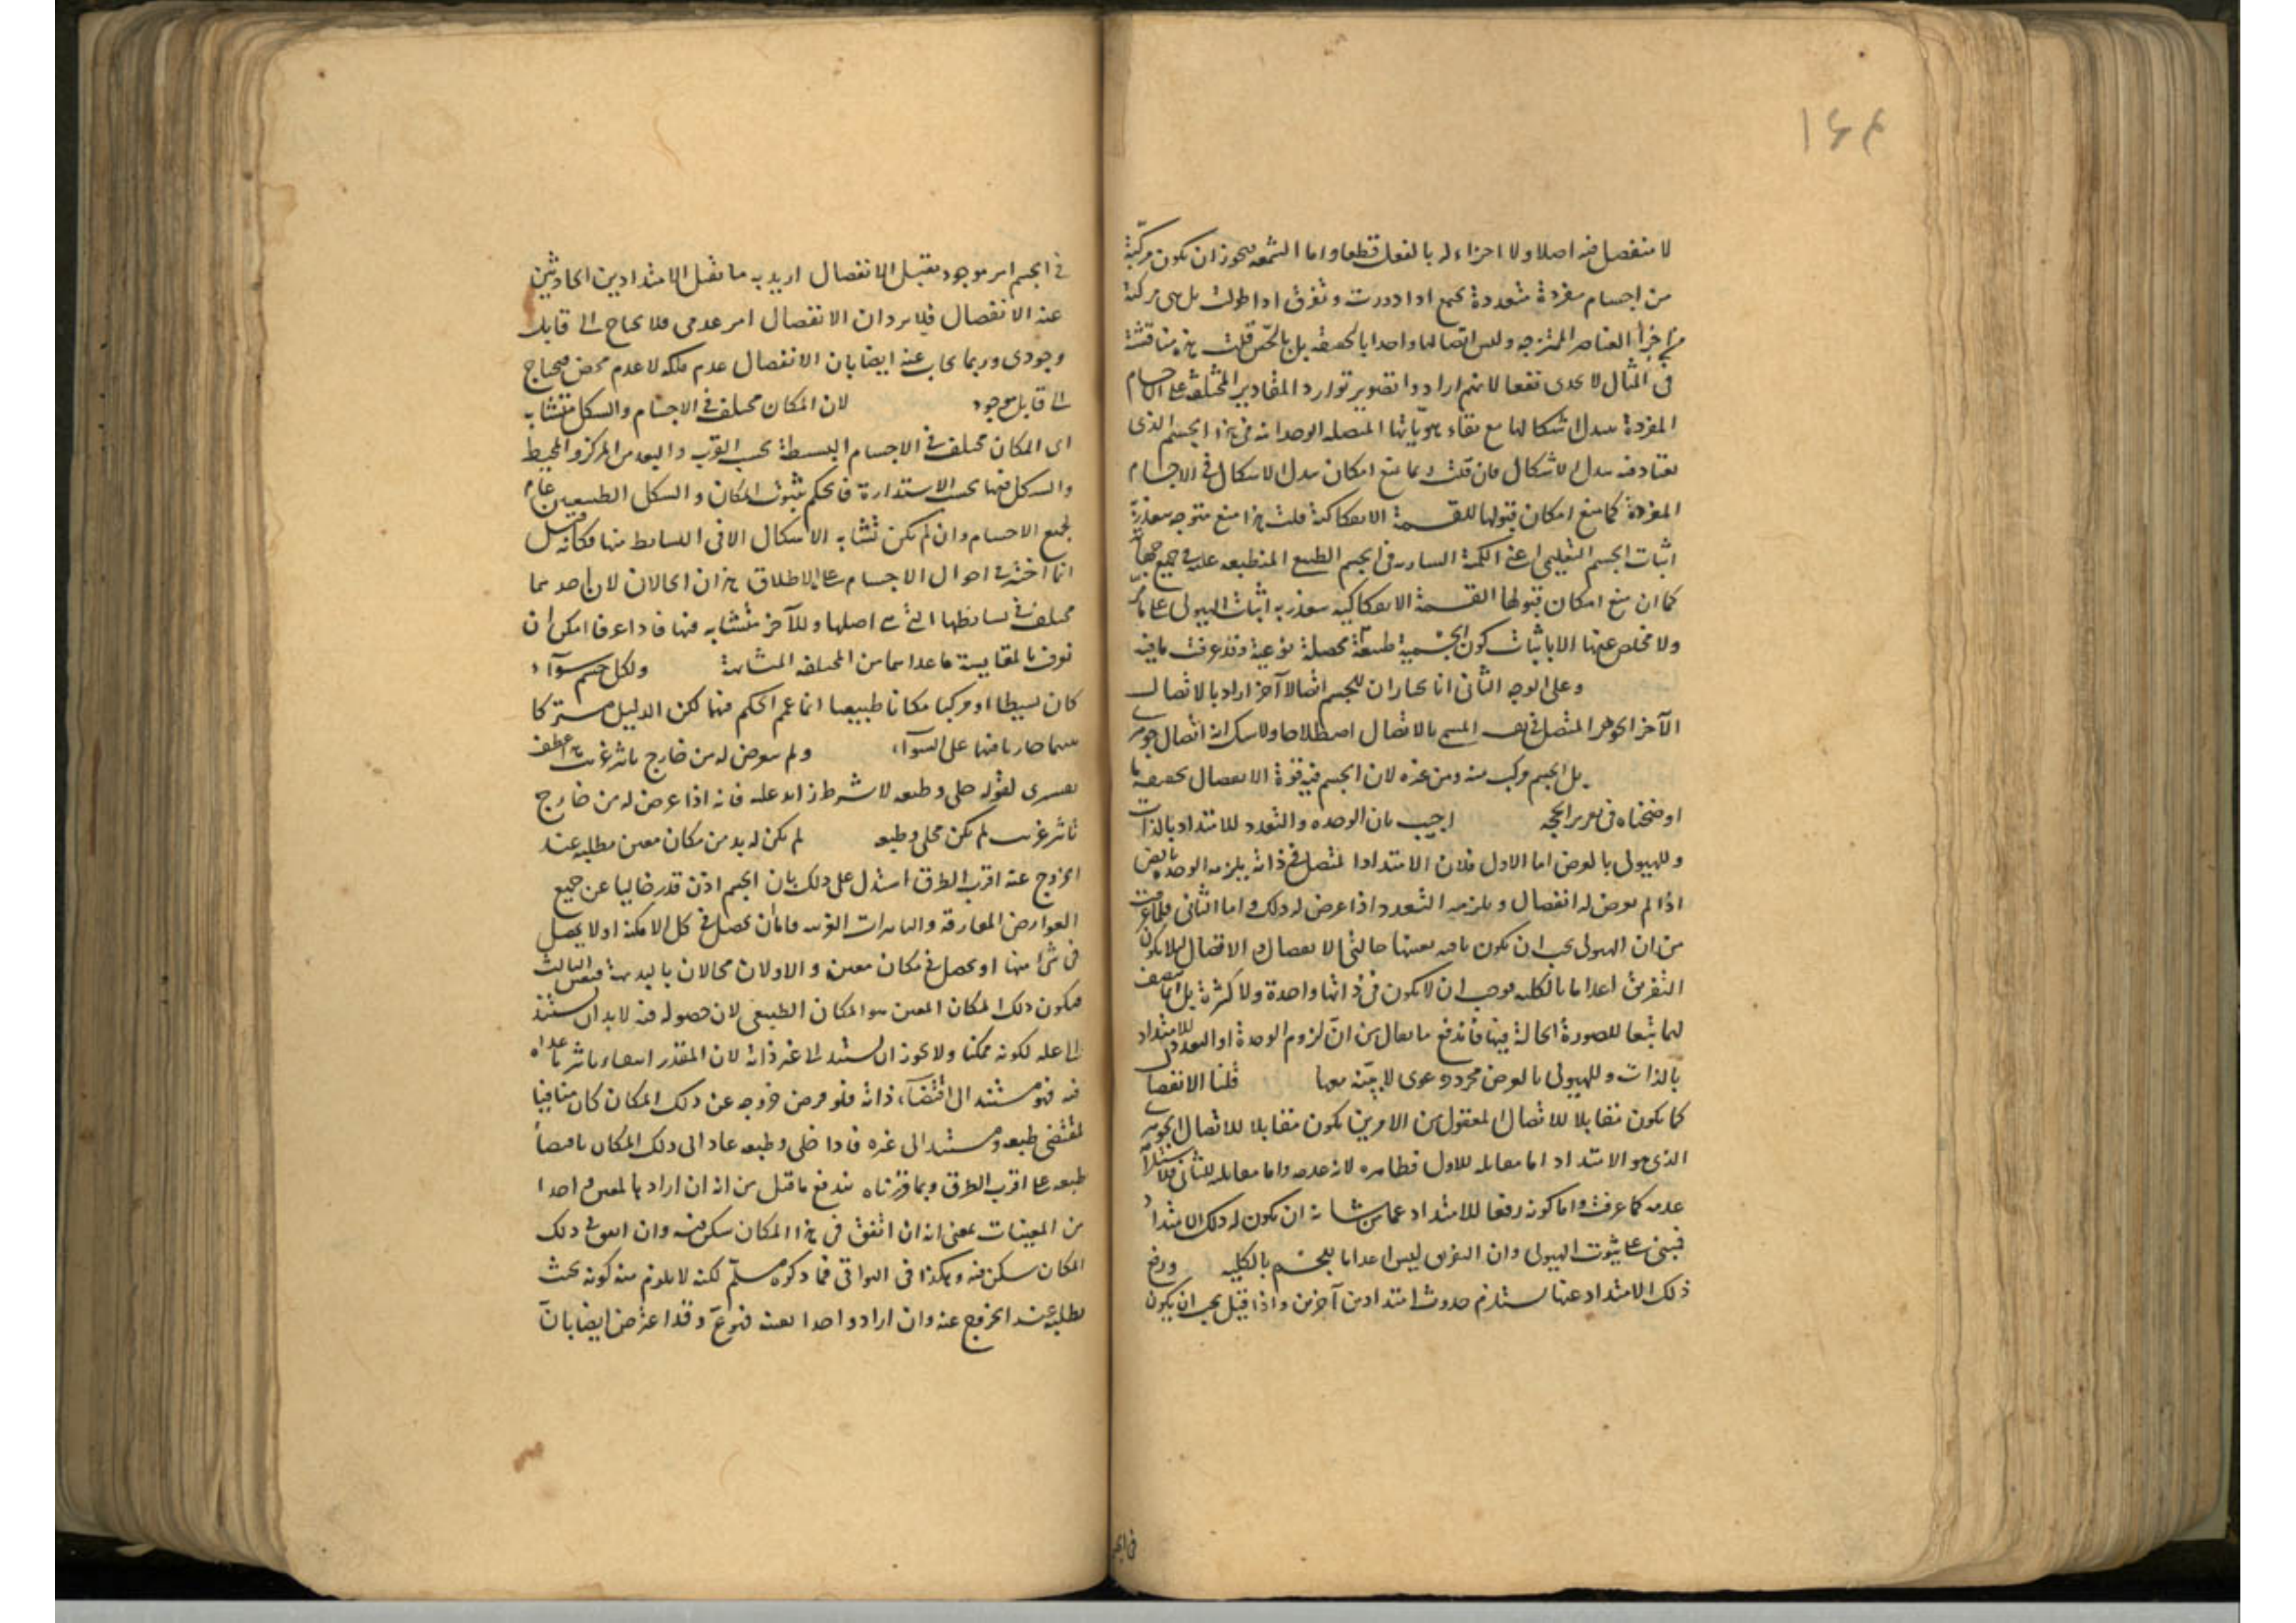 ١٤٤
لا منفصل فيه اصلا ولا اجزاء له بالفعل قطعا واما الشمعة فيجوز ان يكون مركبة
من اجسام مفردة متعددة يجمع اذا دورت وتفرق اذا طولت بل هى مركبة
من اجزاء العناصر الممتزجة وليس اتصالها واحدا بالحقيقة بل بالحس قلت هذه مناقشة
فى المثال لا يجدى نفعا لانهم ارادوا تصوير توارد المقادير المختلفة على الاجسام
المفردة بتبدل اشكالها مع بقاء هوياتها المتصلة الوحدانية فى هذا الجسم الذى
يعتاد فيه تبدل الاشكال فان قلت ربما منع امكان تبدل الاشكال فى الاجسام
المفردة كما منع امكان قبولها للقسمة الانفكاكية قلت هذا منع متوجه يتعذر به
اثبات الجسم التعليمى اعنى الكمية السارية فى الجسم الطبيعى المنطبعة عليه فى جميع جهاته
كما ان منع امكان قبولها القسمة الانفكاكية يتعذر به اثبات الهيولى على ما مر
ولا مخلص عنها الا باثبات كون الجسمية طبيعة محصلة نوعية وقد عرفت ما فيه
وعلى الوجه الثانى انا نختار ان للجسم اتصالا آخر اراد بالاتصال
الآخر الجوهر المتصل فى نفسه المسمى بالاتصال اصطلاحا ولا شك انه اتصال جوهرى
بل الجسم مركب منه ومن غيره لان الجسم فيه قوة الانفصال بحقيقة ما
اوضحناه فى تقرير الحجة اجيب بان الوحدة والتعدد للامتداد بالذات
وللهيولى بالعرض اما الاول فلان الامتداد المتصل فى ذاته يلزمه الوحدة
اذا لم يعرض له انفصال ويلزمه التعدد اذا عرض له ذلك واما الثانى فلما عرفت
من ان الهيولى يجب ان يكون باقية بعينها حالتى الانفصال والاتصال لئلا يكون
التفريق اعداما بالكلية فوجب ان لا يكون فى ذاتها واحدة ولا كثيرة بل انما يتصف
بهما تبعا للصورة الحالة فيها فاندفع ما يقال من ان لزوم الوحدة او التعدد للامتداد
بالذات وللهيولى بالعرض مجرد دعوى لا بينة معها قلنا الانفصال
كما يكون مقابلا للاتصال المعقول بين الامرين يكون مقابلا للاتصال الجوهرى
الذى هو الامتداد اما مقابلته للاول فظاهره لانه عدمه واما مقابلته للثانى
عدمه كما عرفت واما كونه رفعا للامتداد عما من شانه ان يكون له ذلك الامتداد
فيبنى على ثبوت الهيولى وان التفريق ليس اعداما للجسم بالكلية ورفع
ذلك الامتداد عنها يستلزم حدوث امتدادين آخرين واذا قيل يجب ان يكون
فى الجسم
فى الجسم امر موجود يقبل الانفصال اريد به ما يقبل الامتدادين الحادثين
عند الانفصال فلا يرد ان الانفصال امر عدمى فلا يحتاج الى قابل
وجودى وربما يجاب عنه ايضا بان الانفصال عدم ملكة لا عدم محض فيحتاج
الى قابل موجود لان المكان مختلف فى الاجسام والشكل متشابه
اى المكان مختلف فى الاجسام البسيطة بحسب القرب والبعد من المركز والمحيط
والشكل فيها بحسب الاستدارة فالحكم بثبوت المكان والشكل الطبيعيين عام
لجميع الاجسام وان لم يكن تشابه الاشكال الا فى البسائط منها فكانه قيل
انما اختير فى احوال الاجسام على الاطلاق هذان الحالان لان احدهما
مختلف فى بسائطها التى هى اصلها وللآخر متشابه فيها فاذا عرفا امكن ان
تعرف بالمقايسة ما عداهما من المختلفة المتشابهة ولكل جسم سوآء
كان بسيطا او مركبا مكانا طبيعيا انما عمم الحكم فيهما لكون الدليل مشتركا
بينهما جاريا فيهما على السوآء ولم يعرض له من خارج تاثير غريب هذا عطف
تفسيرى لقوله خلى وطبعه لا شرط زائد عليه فانه اذا عرض له من خارج
تاثير غريب لم يكن مخلى وطبعه لم يكن له بد من مكان معين يطلبه عند
الخروج عنه اقرب الطرق استدل على ذلك بان الجسم اذن قدر خاليا عن جميع
العوارض المفارقة والتاثيرات الغريبة فاما ان يحصل فى كل الامكنة او لا يحصل
فى شئ منها او يحصل فى مكان معين والاولان محالان بالبديهة فتعين الثالث
فيكون ذلك المكان المعين هو المكان الطبيعى لان حصوله فيه لا بد ان يستند
الى علة لكونه ممكنا ولا يجوز ان يستند الى غير ذاته لان المقدر انتفاء تاثير ما عداه
فيه فهو مستند الى اقتضاء ذاته فلو فرض خروجه عن ذلك المكان كان منافيا
لمقتضى طبعه ومستندا الى غيره فاذا خلى وطبعه عاد الى ذلك المكان باقتضاء
طبعه على اقرب الطرق وبما قررناه يندفع ما قيل من انه ان اراد بالمعين واحدا
من المعينات بمعنى انه ان اتفق فى هذا المكان سكن فيه وان اتفق فى ذلك
المكان سكن فيه وهكذا فى البواقى فما ذكره مسلم لكنه لا يلزم منه كونه بحيث
يطلبه عند الخروج عنه وان اراد واحدا بعينه فهو مم وقد اعترض ايضا بان